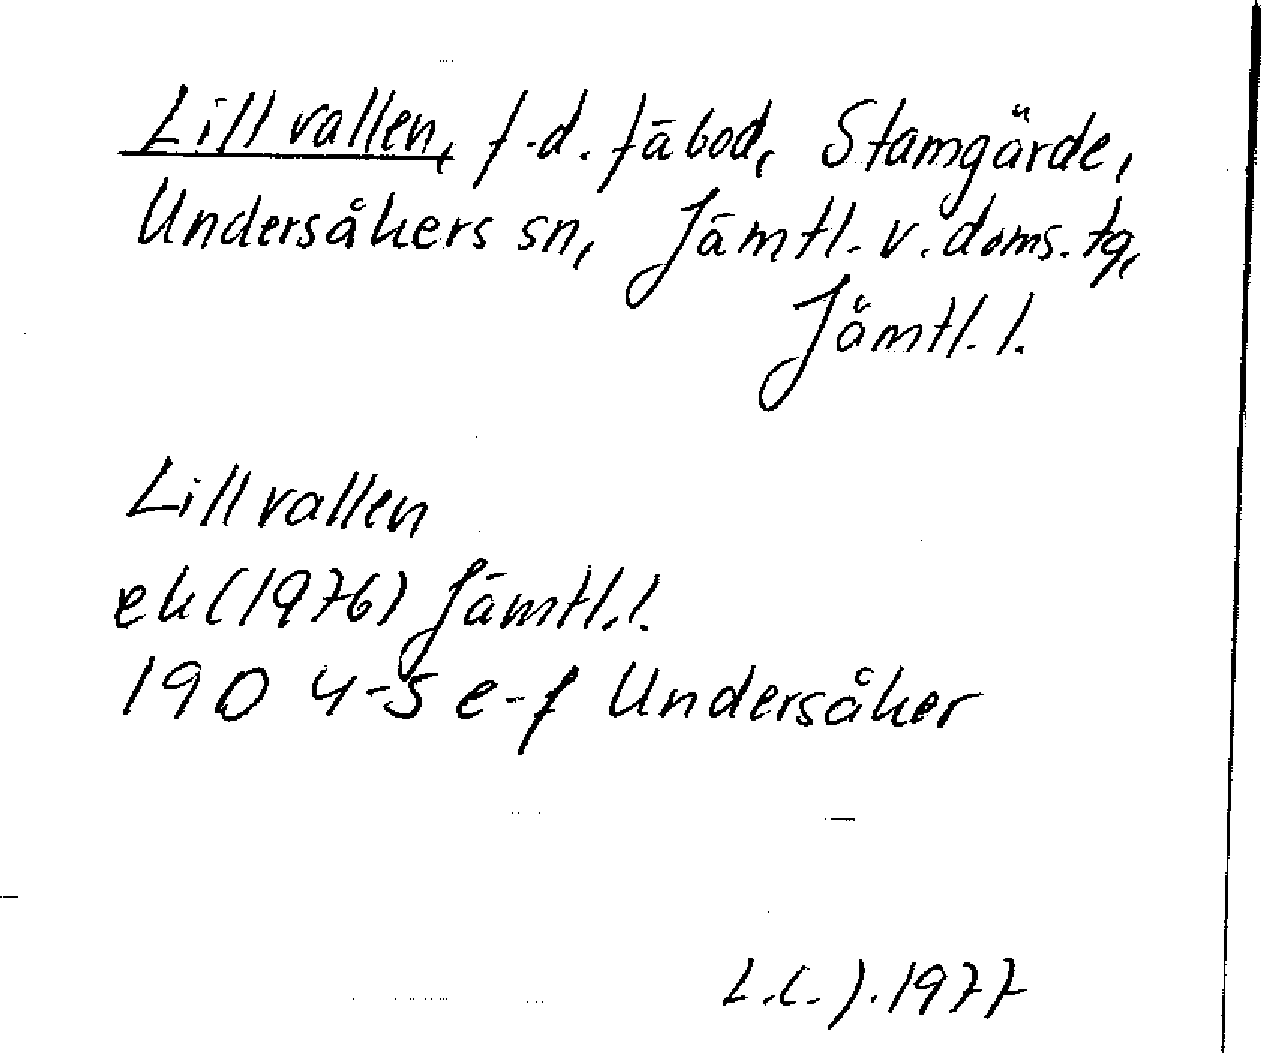 Lillvallen, f.d. fäbod, Stamgärde,
Undersåkers sn, Jämtl. v. doms. tg,
Jämtl. l.
Lillvallen
ek (1976) Jämtl. l.
190 4-5 e-f Undersåker
L.C.J. 1977